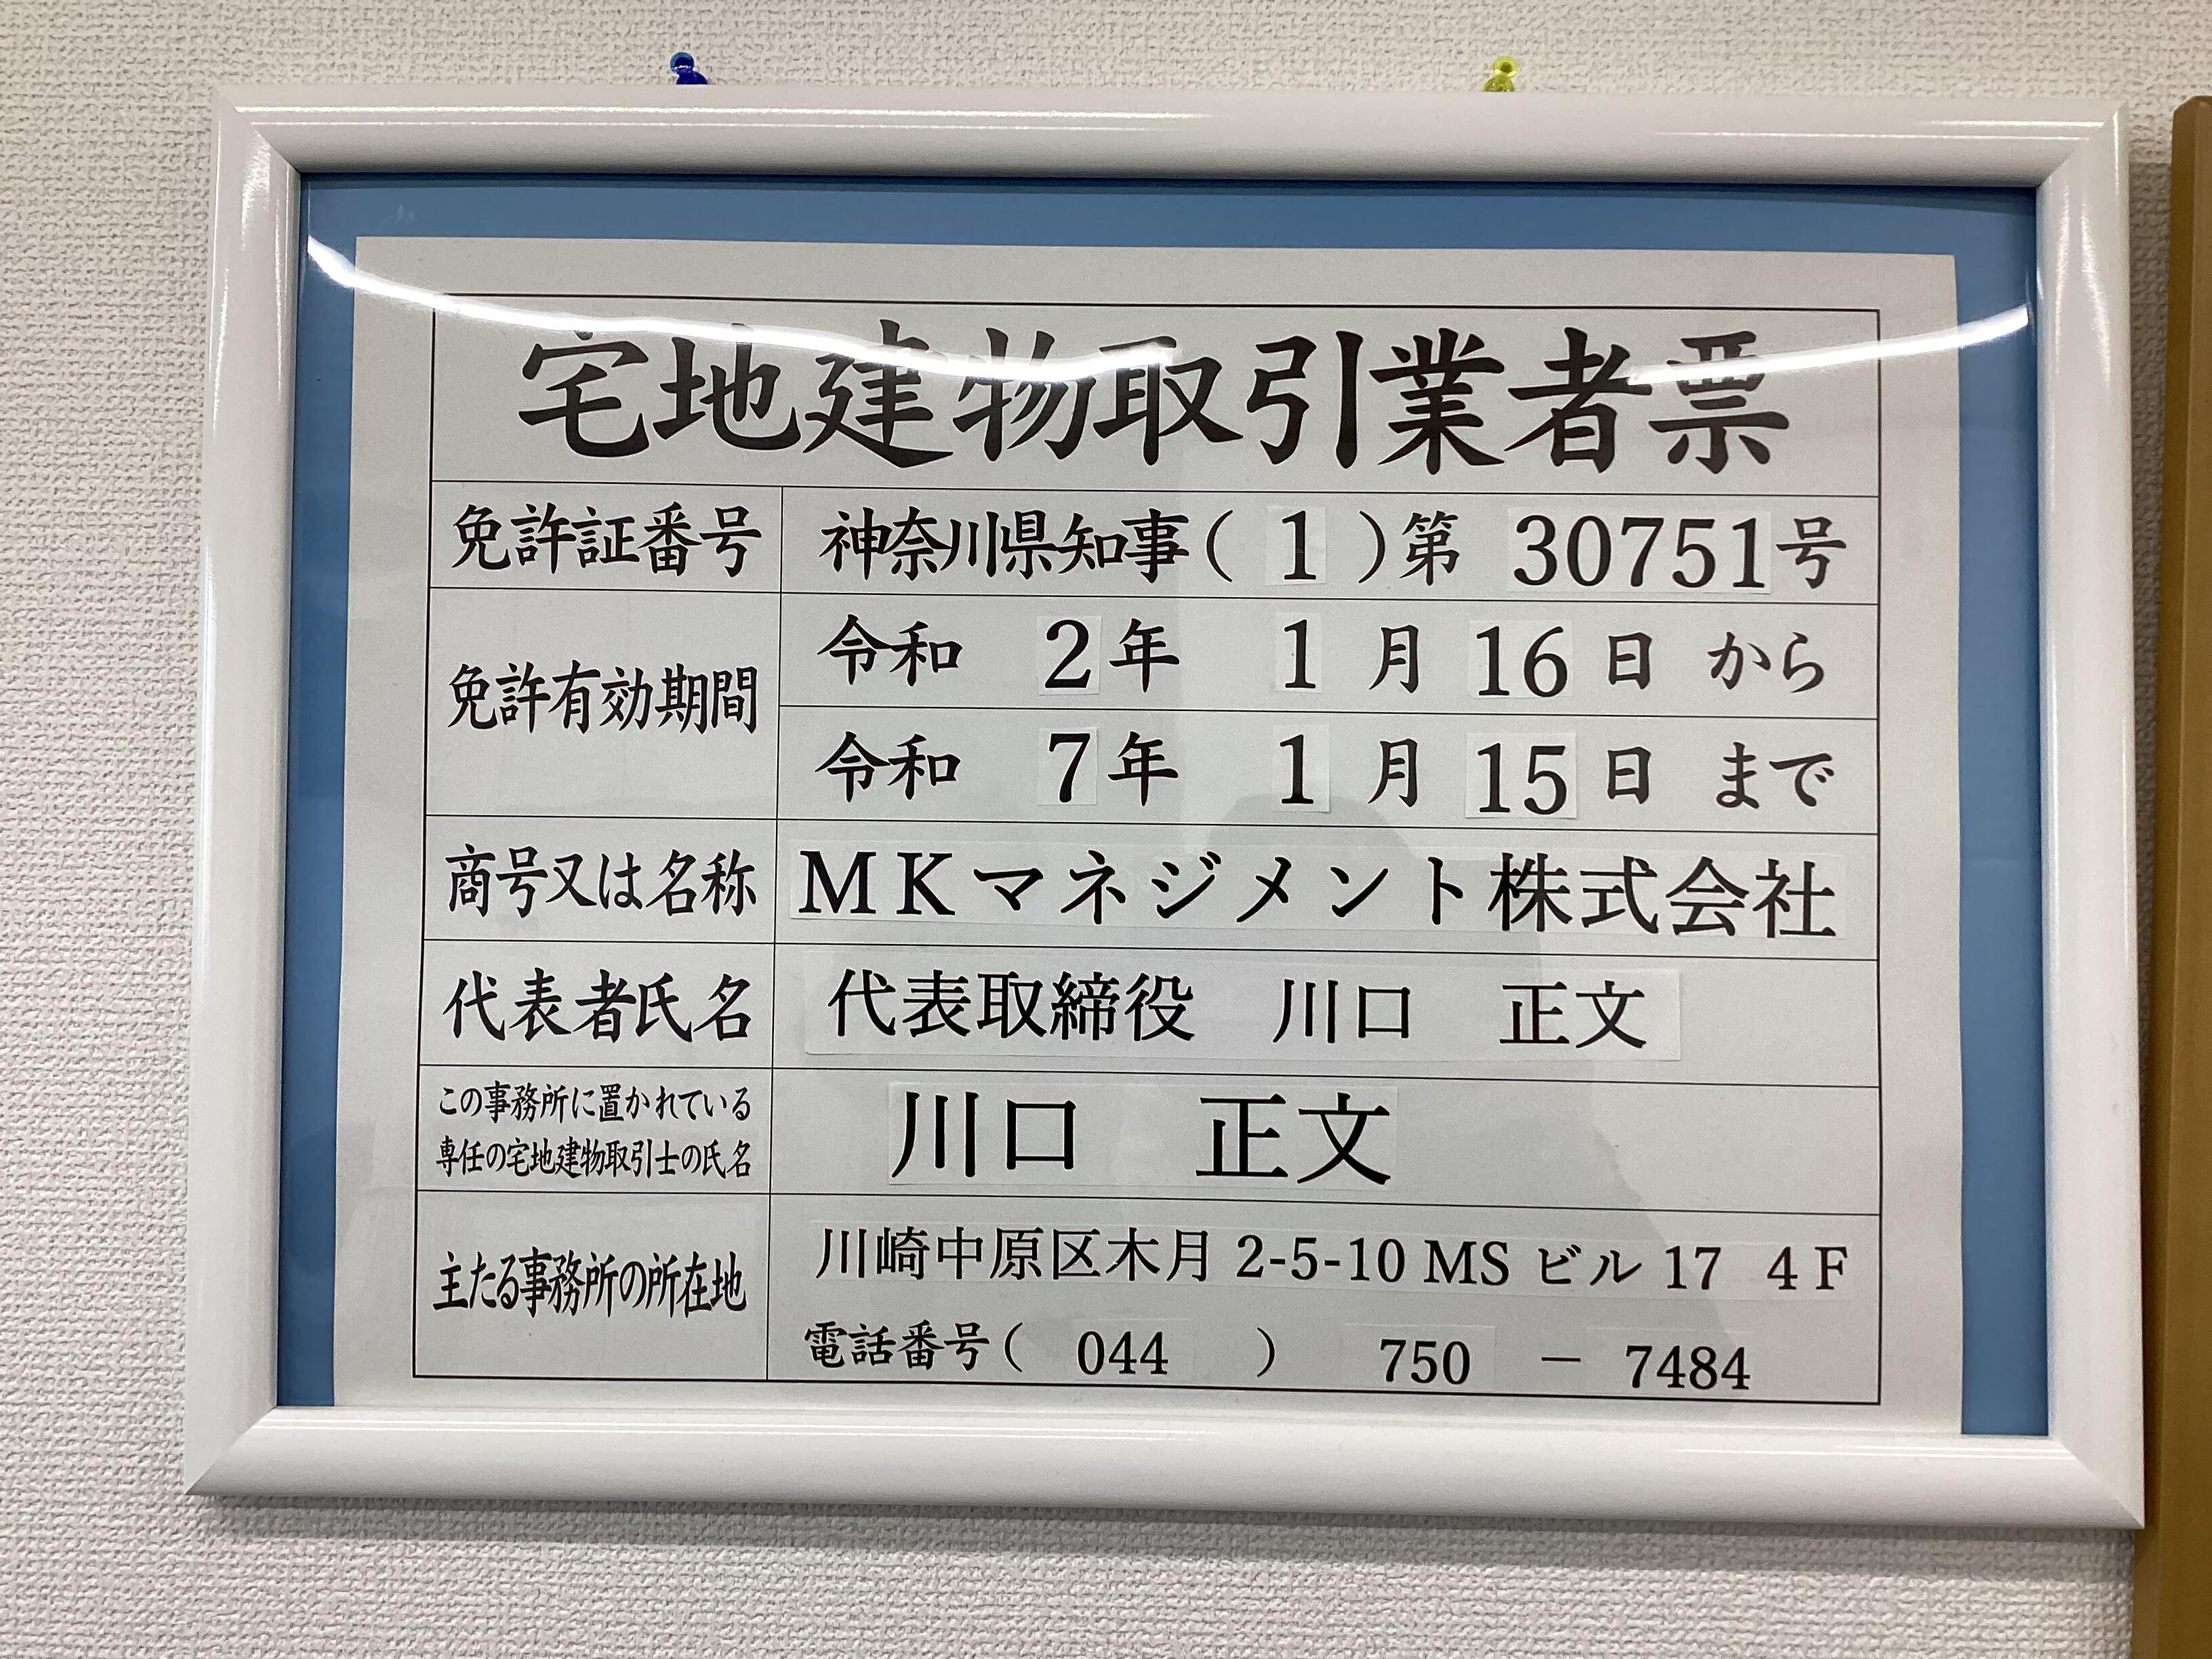 宅地建物取引業者票
免許証番号 神奈川県知事( 1 )第 30751号
免許有効期間
令和 2年 1月 16日 から
令和 7年 1月 15日 まで
商号又は名称 MKマネジメント株式会社
代表者氏名 代表取締役 川口 正文
この事務所に置かれている
専任の宅地建物取引士の氏名
川口 正文
主たる事務所の所在地
川崎中原区木月 2-5-10 MS ビル 17 4F
電話番号( 044 ) 750 － 7484